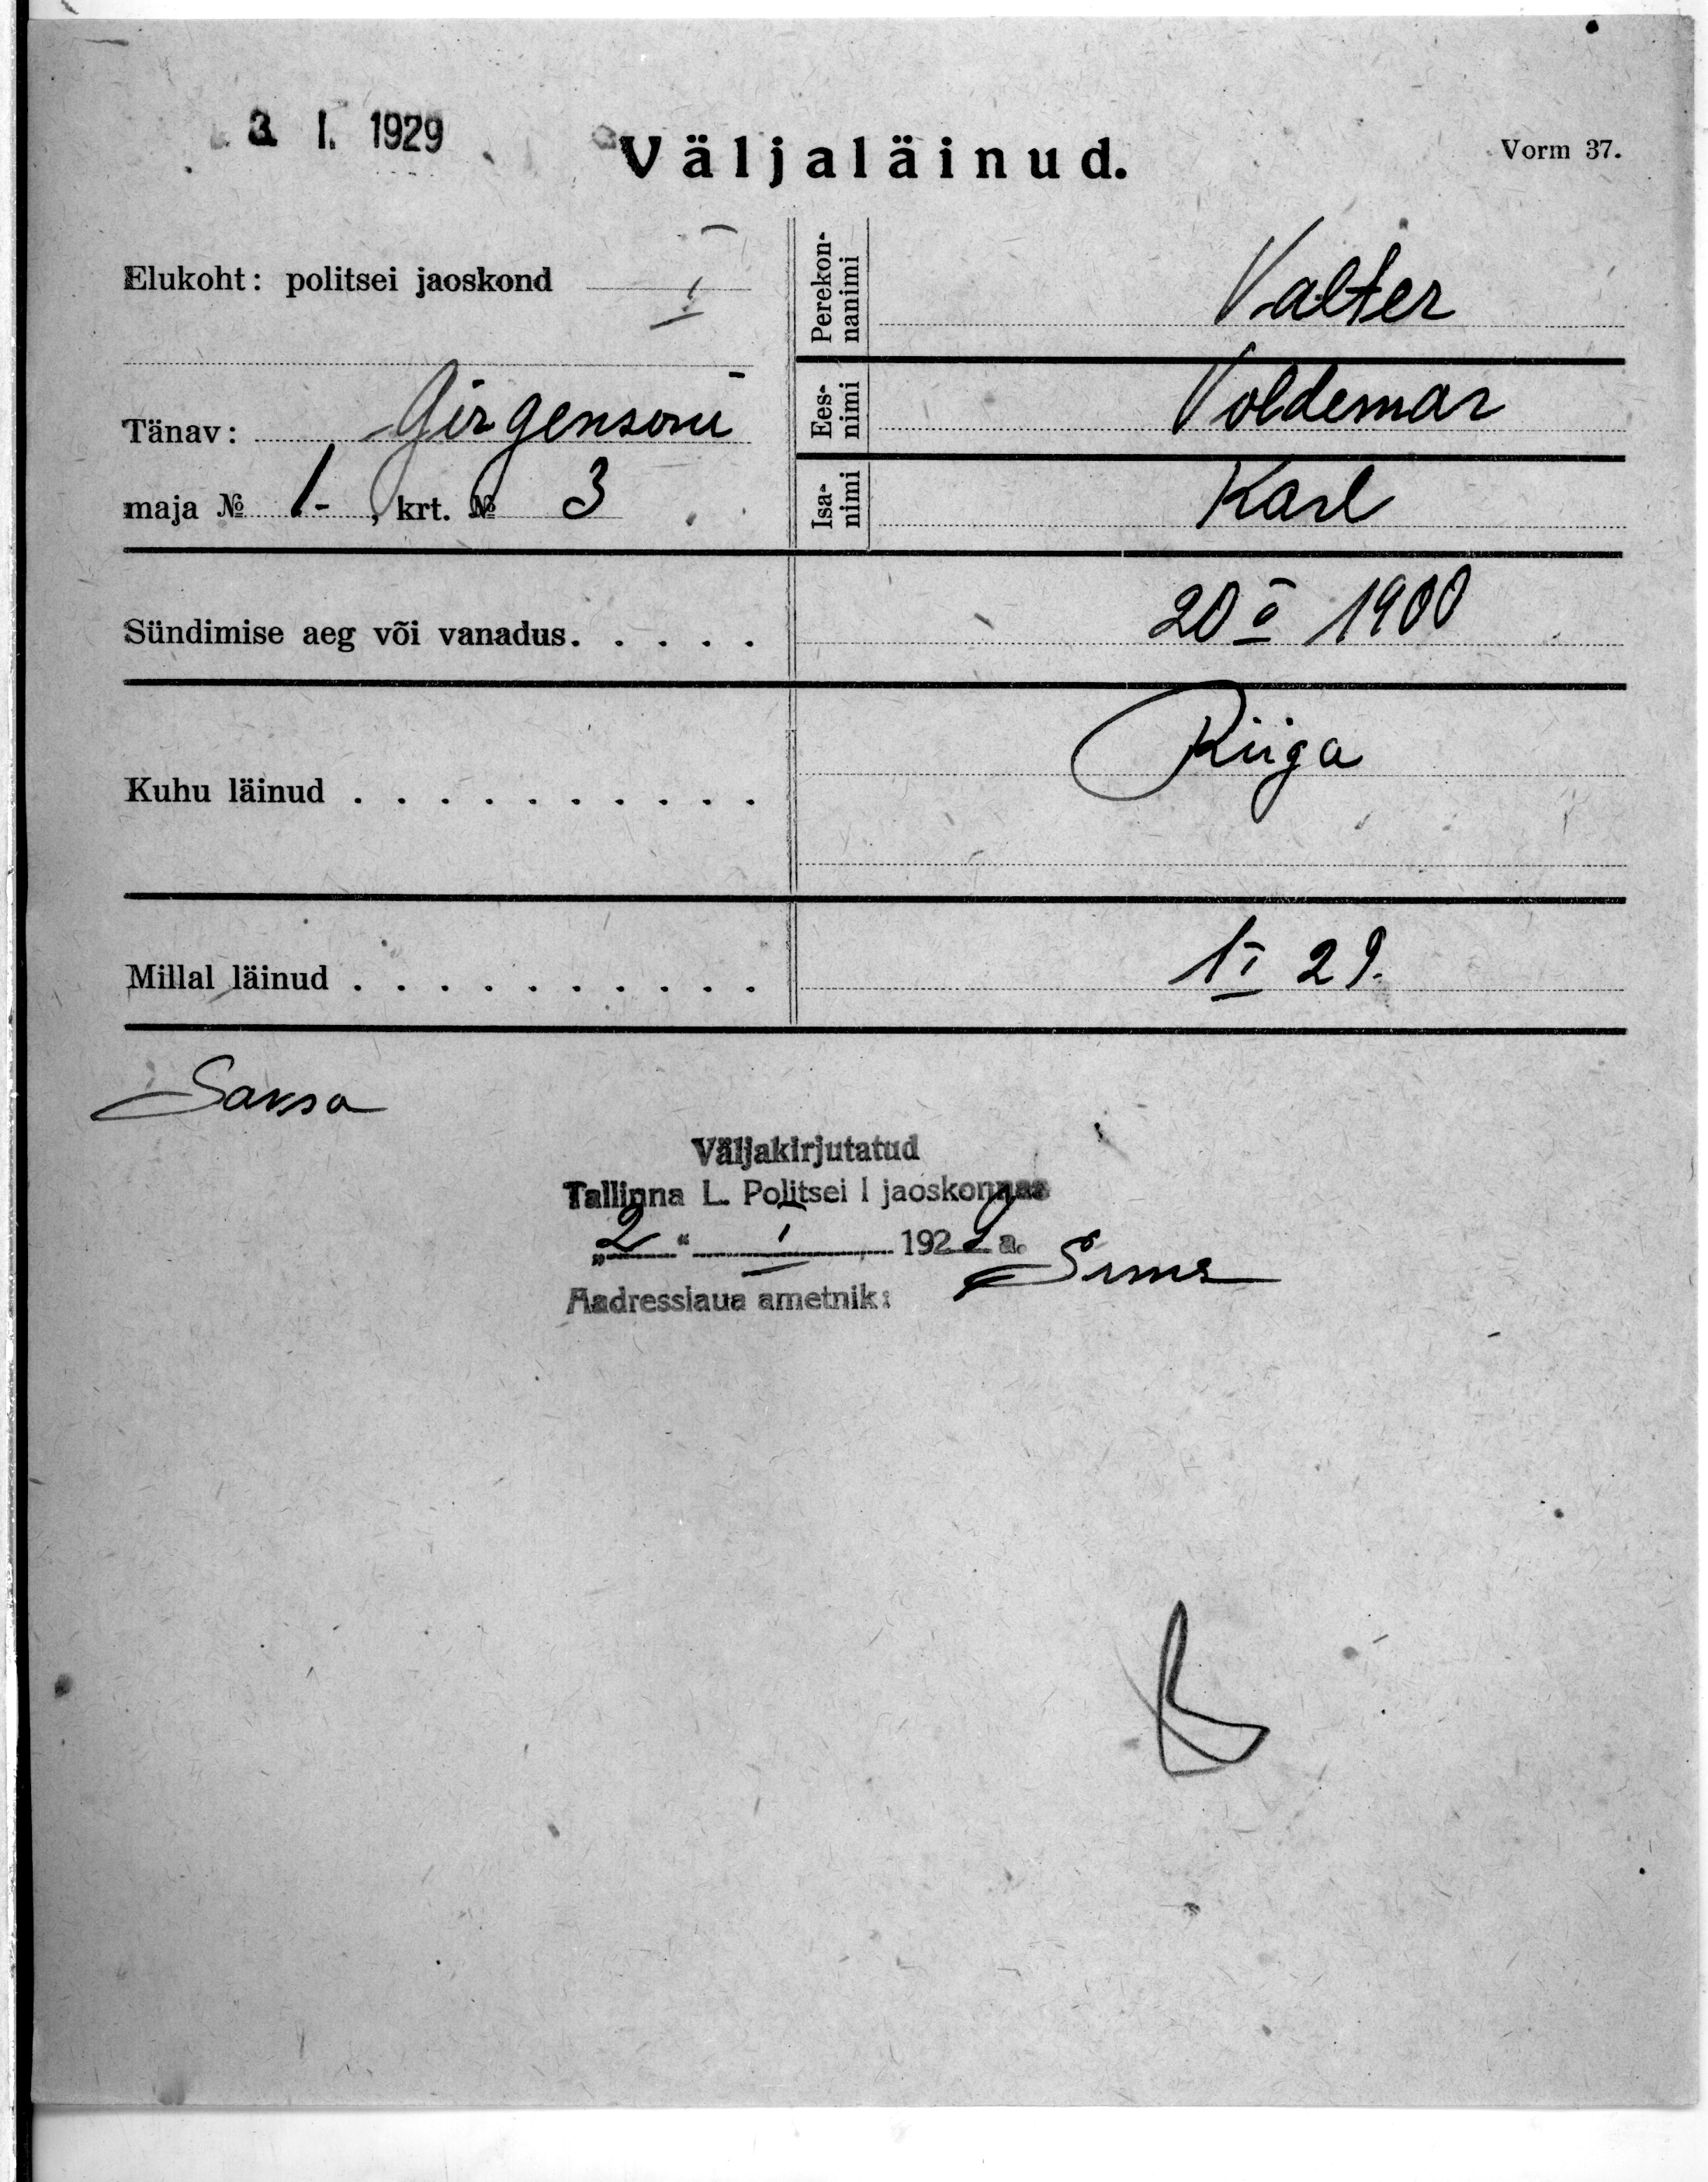 3 I. 1929
Väljaläinud.
Vorm 37.
Elukoht: politsei jaoskond I
Tänav: Girgensoni
maja № 1- , krt. № 3
Perekon-
nanimi
Valter
Ees-
nimi
Voldemar
Isa-
nimi
Karl
Sündimise aeg või vanadus. . . . . 20 1900
Kuhu läinud . . . . . . . . . . Riiga
Millal läinud . . . . . . . . . . 1 I 29.
Saksa
Väljakirjutatud
Tallinna L. Politsei I jaoskonnas
„2“ I 1929 a.
Aadresslaua ametnik: